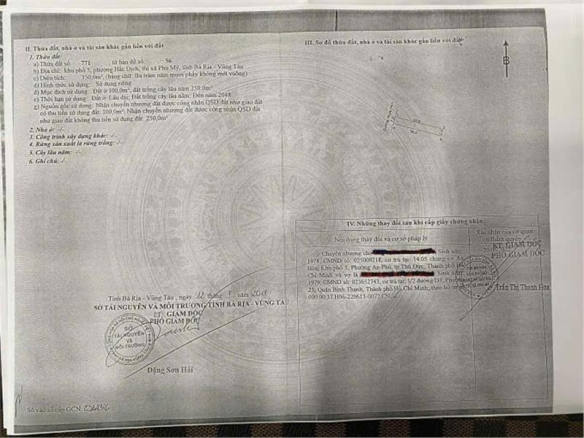 II. Thửa đất, nhà ở và tài sản khác gắn liền với đất
1. Thửa đất:
a) Thửa đất số: 771 tờ bản đồ số: 56
b) Địa chỉ: khu phố 5, phường Hắc Dịch, thị xã Phú Mỹ, tỉnh Bà Rịa - Vũng Tàu
c) Diện tích: 350,0m², (bằng chữ: Ba trăm năm mươi phẩy không mét vuông)
d) Hình thức sử dụng: Sử dụng riêng
đ) Mục đích sử dụng: Đất ở 100,0m², đất trồng cây lâu năm 250,0m²
e) Thời hạn sử dụng: Đất ở: Lâu dài; Đất trồng cây lâu năm: Đến năm 2048
g) Nguồn gốc sử dụng: Nhận chuyển nhượng đất được công nhận QSD đất như giao đất
có thu tiền sử dụng đất: 100,0m²; Nhận chuyển nhượng đất được công nhận QSD đất
như giao đất không thu tiền sử dụng đất: 250,0m²
2. Nhà ở: -/-
3. Công trình xây dựng khác: -/-
4. Rừng sản xuất là rừng trồng: -/-
5. Cây lâu năm: -/-
6. Ghi chú: -/-
Tỉnh Bà Rịa - Vũng Tàu, ngày
SỞ TÀI NGUYÊN VÀ MÔI TRƯỜNG TỈNH BÀ RỊA - VŨNG TÀU
KT. GIÁM ĐỐC
PHÓ GIÁM ĐỐC
SỞ
TÀI NGUYÊN
VÀ
MÔI TRƯỜNG
Đặng Sơn Hải
Số vào sổ cấp GCN:
III. Sơ đồ thửa đất, nhà ở và tài sản khác gắn liền với đất
B
IV. Những thay đổi sau khi cấp giấy chứng nhận
Nội dung thay đổi và cơ sở pháp lý
Xác nhận của cơ quan
có thẩm quyền
Chuyển nhượng cho Sinh năm:
1978, CMND số: 025009218, cư trú tại: 14.05 chung cư An
Hòa, khu phố 5, Phường An Phú, tp Thủ Đức, Thành phố Hồ
Chí Minh và vợ là Sinh năm:
1979, CMND số: 023652343, cư trú tại: 1/2 đường D3, Phường
25, Quận Bình Thạnh, Thành phố Hồ Chí Minh, theo hồ sơ số
KT. GIÁM ĐỐC
PHÓ GIÁM ĐỐC
Trần Thị Thanh Hoa